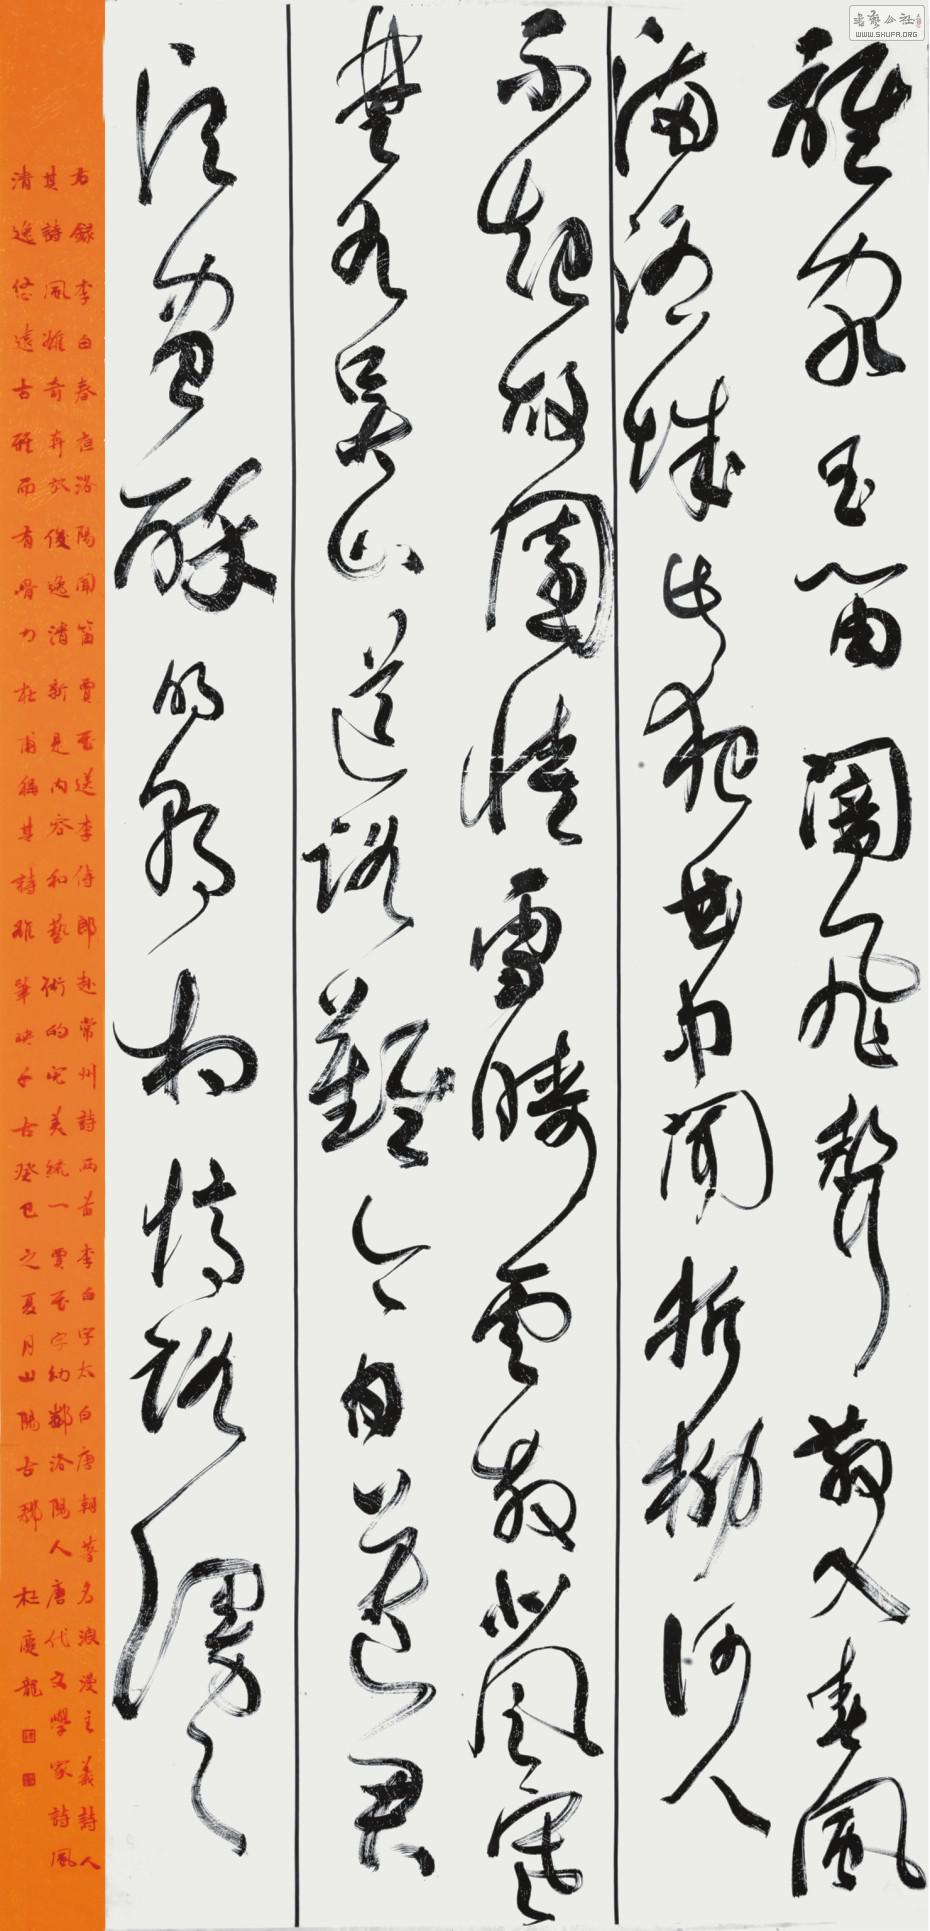 書藝公社
WWW.SHUFA.ORG
誰家玉笛闇飛聲散入春風
滿洛城此夜曲中聞折柳何人
不起故園情雪晴雲散北風寒
楚水吳山道路難今日送君
須盡醉明朝相憶路漫々
右錄李白春夜洛陽聞笛賈至送李侍郎赴常州詩兩首李白字太白唐朝著名浪漫主義詩人
其詩風雄奇奔放俊逸清新是內容和藝術的完美統一賈至字幼鄰洛陽人唐代文學家詩風
清逸悠遠古雅而有骨力杜甫稱其詩雄筆映千古癸巳之夏月山陽古郡杜慶龍